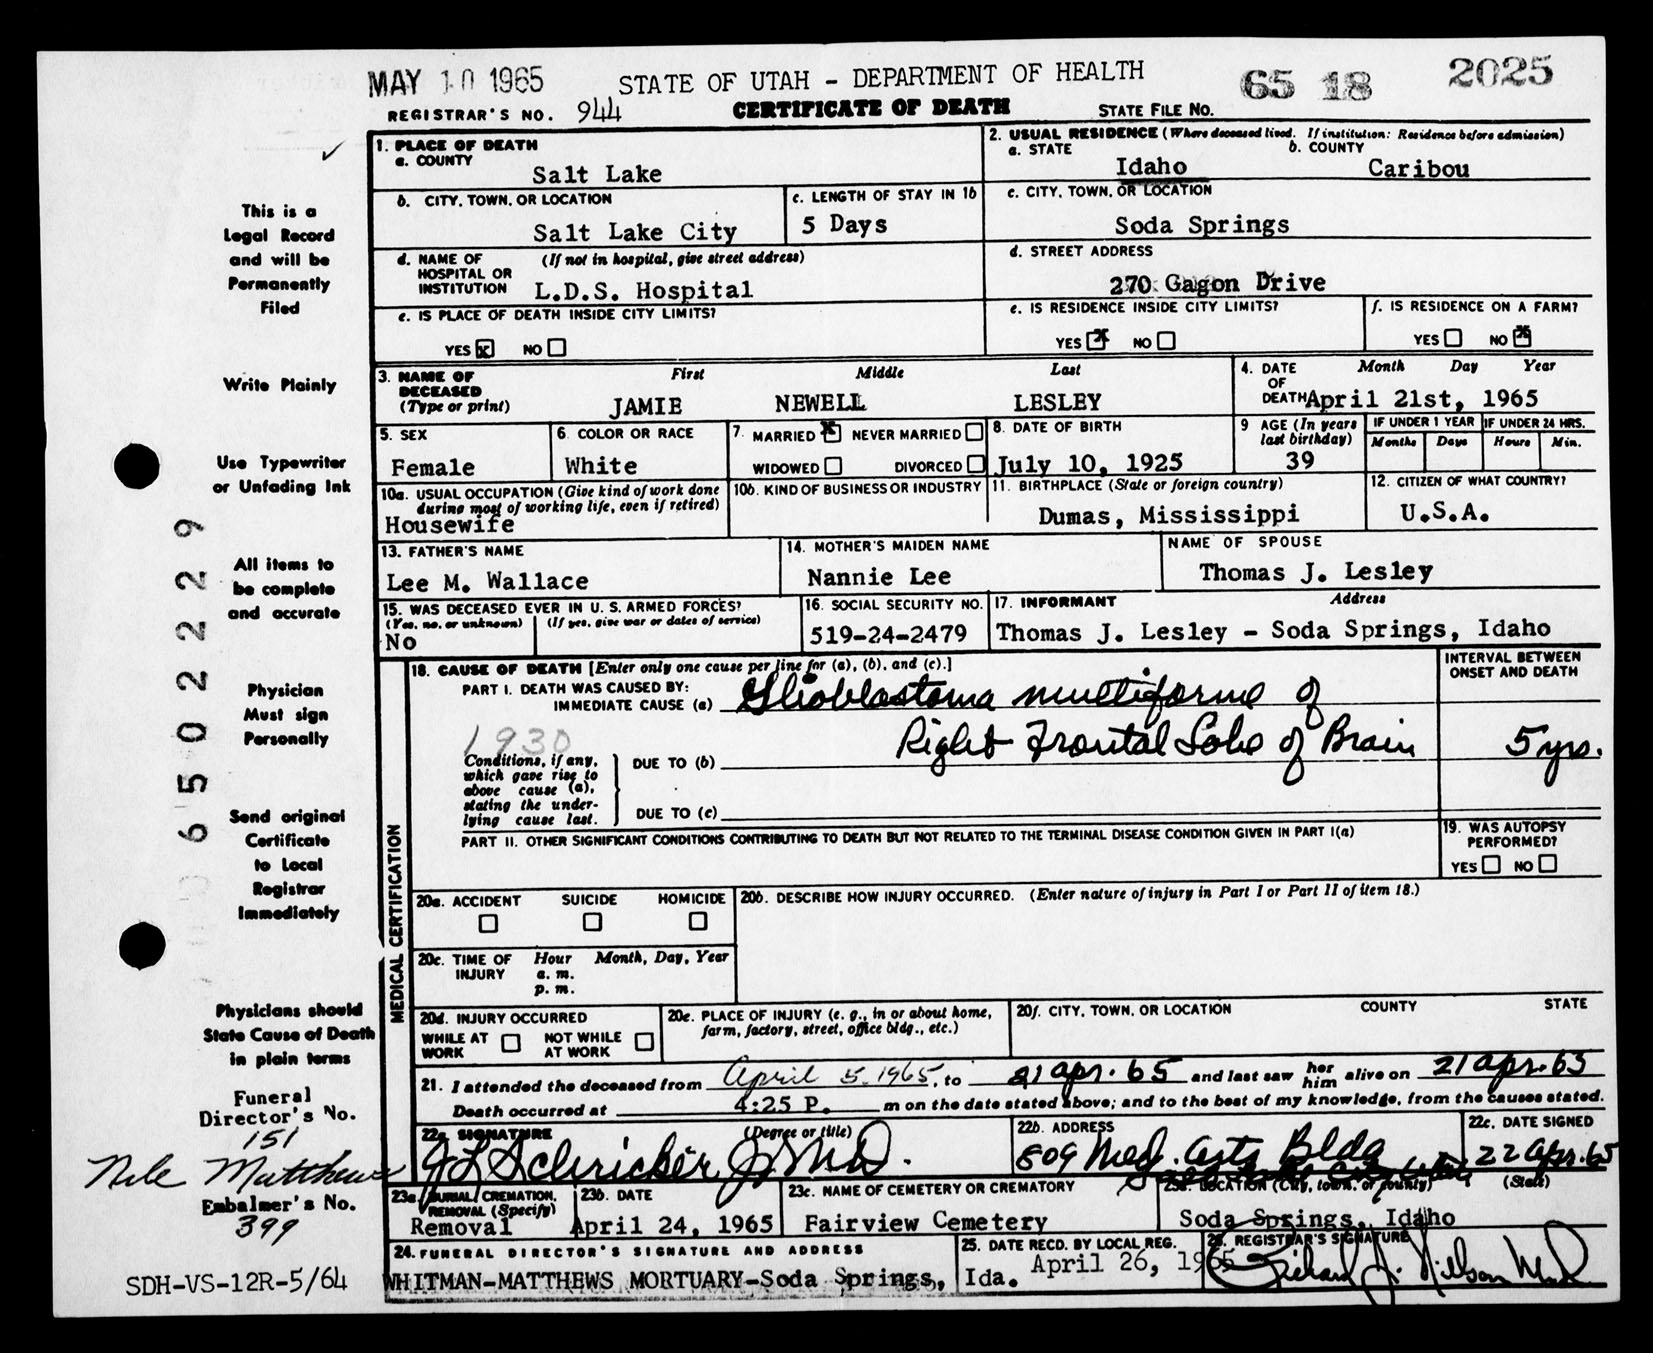 MAY 10 1965 STATE OF UTAH - DEPARTMENT OF HEALTH 65 18 2025
REGISTRAR'S NO. 944 CERTIFICATE OF DEATH STATE FILE NO.
1. PLACE OF DEATH
a. COUNTY
Salt Lake
2. USUAL RESIDENCE (Where deceased lived. If institution: Residence before admission)
a. STATE b. COUNTY
Idaho Caribou
b. CITY, TOWN, OR LOCATION
Salt Lake City
c. LENGTH OF STAY IN 1b
5 Days
c. CITY, TOWN, OR LOCATION
Soda Springs
d. NAME OF HOSPITAL OR INSTITUTION (If not in hospital, give street address)
L.D.S. Hospital
d. STREET ADDRESS
270 Gagon Drive
e. IS PLACE OF DEATH INSIDE CITY LIMITS?
YES x NO
e. IS RESIDENCE INSIDE CITY LIMITS?
YES x NO
f. IS RESIDENCE ON A FARM?
YES NO x
3. NAME OF DECEASED (Type or print)
First Middle Last
JAMIE NEWELL LESLEY
4. DATE OF DEATH Month Day Year
April 21st, 1965
5. SEX
Female
6. COLOR OR RACE
White
7. MARRIED x NEVER MARRIED
WIDOWED DIVORCED
8. DATE OF BIRTH
July 10, 1925
9 AGE (In years last birthday)
39
IF UNDER 1 YEAR
Months Days
IF UNDER 24 HRS.
Hours Min.
10a. USUAL OCCUPATION (Give kind of work done during most of working life, even if retired)
Housewife
10b. KIND OF BUSINESS OR INDUSTRY
11. BIRTHPLACE (State or foreign country)
Dumas, Mississippi
12. CITIZEN OF WHAT COUNTRY?
U.S.A.
13. FATHER'S NAME
Lee M. Wallace
14. MOTHER'S MAIDEN NAME
Nannie Lee
NAME OF SPOUSE
Thomas J. Lesley
15. WAS DECEASED EVER IN U. S. ARMED FORCES?
(Yes, no, or unknown) (If yes, give war or dates of service)
No
16. SOCIAL SECURITY NO.
519-24-2479
17. INFORMANT Address
Thomas J. Lesley - Soda Springs, Idaho
MEDICAL CERTIFICATION
18. CAUSE OF DEATH [Enter only one cause per line for (a), (b), and (c).]
INTERVAL BETWEEN ONSET AND DEATH
PART I. DEATH WAS CAUSED BY:
IMMEDIATE CAUSE (a) Glioblastoma multiforme of
Right Frontal Lobe of Brain 5 yrs.
1930
Conditions, if any, which gave rise to above cause (a), stating the underlying cause last.
DUE TO (b)
DUE TO (c)
PART II. OTHER SIGNIFICANT CONDITIONS CONTRIBUTING TO DEATH BUT NOT RELATED TO THE TERMINAL DISEASE CONDITION GIVEN IN PART I(a)
19. WAS AUTOPSY PERFORMED?
YES NO
20a. ACCIDENT SUICIDE HOMICIDE
20b. DESCRIBE HOW INJURY OCCURRED. (Enter nature of injury in Part I or Part II of item 18.)
20c. TIME OF INJURY Hour Month, Day, Year
a. m.
p. m.
20d. INJURY OCCURRED
WHILE AT WORK NOT WHILE AT WORK
20e. PLACE OF INJURY (e. g., in or about home, farm, factory, street, office bldg., etc.)
20f. CITY, TOWN, OR LOCATION COUNTY STATE
21. I attended the deceased from April 5 1965, to 21 Apr. 65 and last saw her him alive on 21 Apr. 65
Death occurred at 4:25 P. m on the date stated above; and to the best of my knowledge, from the causes stated.
22a SIGNATURE (Degree or title)
J L Schricker Jr MD.
22b. ADDRESS
809 Med. Arts Bldg
22c. DATE SIGNED
22 Apr. 65
23a BURIAL, CREMATION, REMOVAL (Specify)
Removal
23b. DATE
April 24, 1965
23c. NAME OF CEMETERY OR CREMATORY
Fairview Cemetery
23d. LOCATION (City, town, or county) (State)
Soda Springs, Idaho
24. FUNERAL DIRECTOR'S SIGNATURE AND ADDRESS
WHITMAN-MATTHEWS MORTUARY-Soda Springs, Ida.
25. DATE RECD. BY LOCAL REG.
April 26, 1965
26. REGISTRAR'S SIGNATURE
Richard J. Nilson MD
This is a
Legal Record
and will be
Permanently
Filed
Write Plainly
Use Typewriter
or Unfading Ink
All items to
be complete
and accurate
Physician
Must sign
Personally
Send original
Certificate
to Local
Registrar
Immediately
Physicians should
State Cause of Death
in plain terms
Funeral
Director's No.
151
Nile Matthews
Embalmer's No.
399
SDH-VS-12R-5/64
65022229